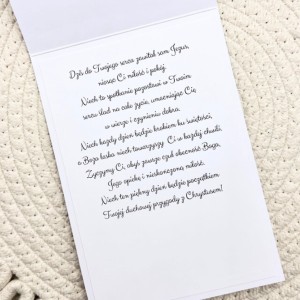 Dziś do Twojego serca zawitał sam Jezus,
niosąc Ci miłość i pokój.
Niech to spotkanie pozostawi w Twoim
sercu ślad na całe życie, umacniając Cię
w wierze i czynieniu dobra.
Niech każdy dzień będzie krokiem ku świętości,
a Boża łaska niech towarzyszy Ci w każdej chwili.
Życzymy Ci, abyś zawsze czuł obecność Boga,
Jego opiekę i nieskończoną miłość.
Niech ten piękny dzień będzie początkiem
Twojej duchowej przygody z Chrystusem!